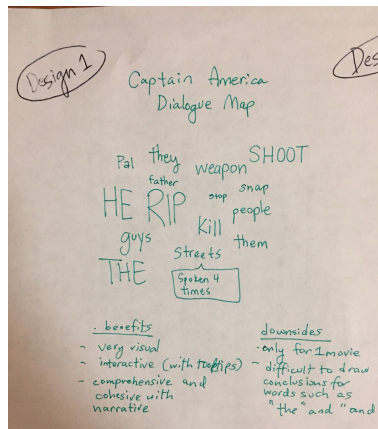 Design 1
Des
Captain America
Dialogue Map
Pal they weapon SHOOT
father stop snap
HE RIP Kill people
guys them
THE Streets
Spoken 4
times
. benefits
- very visual
- interactive (with tooltips)
- comprehensive and
cohesive with
narrative
downsides
- only for 1 movie
- difficult to draw
conclusions for
words such as
"the" and "and